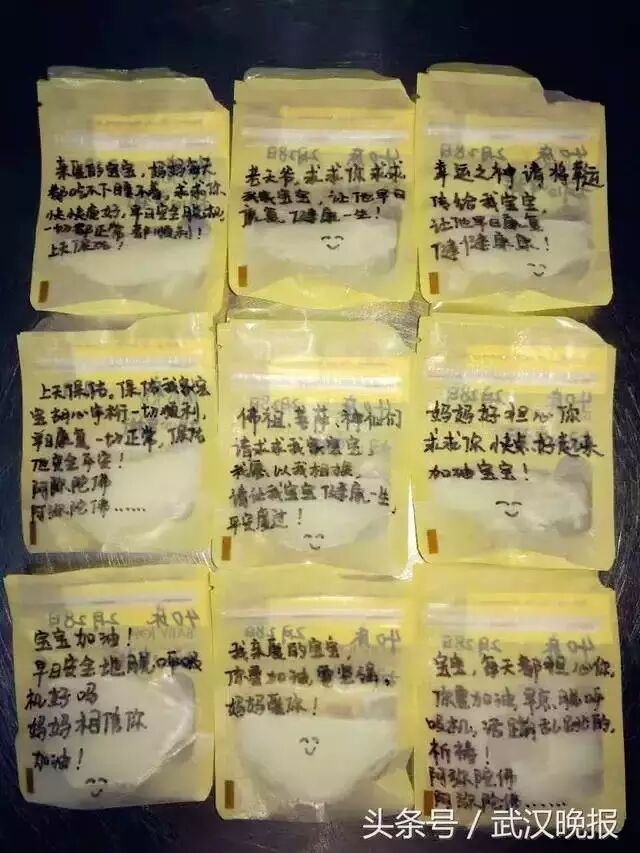 亲爱的宝宝，妈妈每天
都吃不下睡不着，求求你
快快康好，早日安全脱机，
一切都正常 都顺利！
上天保佑！
40床
2月28日
老天爷，求求你求求
我家宝宝，让他早日
康复 健康一生！
40床
2月28日
幸运之神 请将幸运
传给我宝宝，
让他早日康复
健健康康！
上天保佑。保佑我家宝
宝 一切顺利，
早日康复一切正常，保佑
他安全平安！
阿弥陀佛
阿弥陀佛……
佛祖、菩萨、神仙们
请求求我家宝宝，
我愿以我相换，
请让我宝宝健康一生，
平安度过！
妈妈好担心你
求求你快点好起来
加油宝宝！
40床
2月28日
宝宝加油！
早日安全地脱呼吸
机好吗
妈妈相信你
加油！
40床
2月28日
我亲爱的宝宝，
你要加油，要坚强，
妈妈爱你！
40床
2月28日
宝宝，每天都担心你，
你要加油，早点脱呼
吸机，活蹦乱跳的，
祈祷！
阿弥陀佛
阿弥陀佛……
头条号／武汉晚报